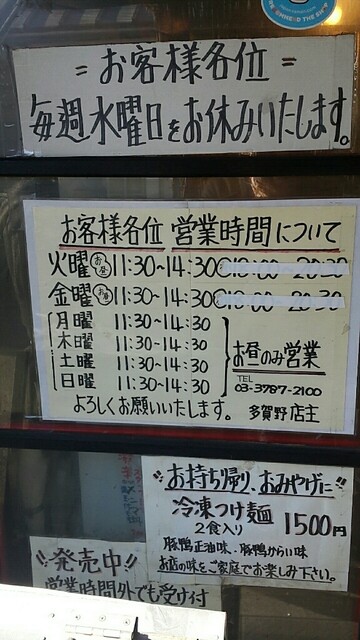 = お客様各位 =
毎週水曜日をお休みいたします。
お客様各位 営業時間について
火曜 お昼 11:30~14:30 18:00-20:30
金曜 お昼 11:30~14:30 18:00-20:30
月曜 11:30~14:30
木曜 11:30~14:30
土曜 11:30~14:30
日曜 11:30~14:30
お昼のみ営業
TEL
03-3787-2100
よろしくお願いいたします。 多賀野店主
お持ち帰り、おみやげに
冷凍つけ麺
2食入り 1500円
豚鴨正油味・豚鴨からい味
お店の味をご家庭でお楽しみ下さい。
発売中!!
営業時間外でも受け付